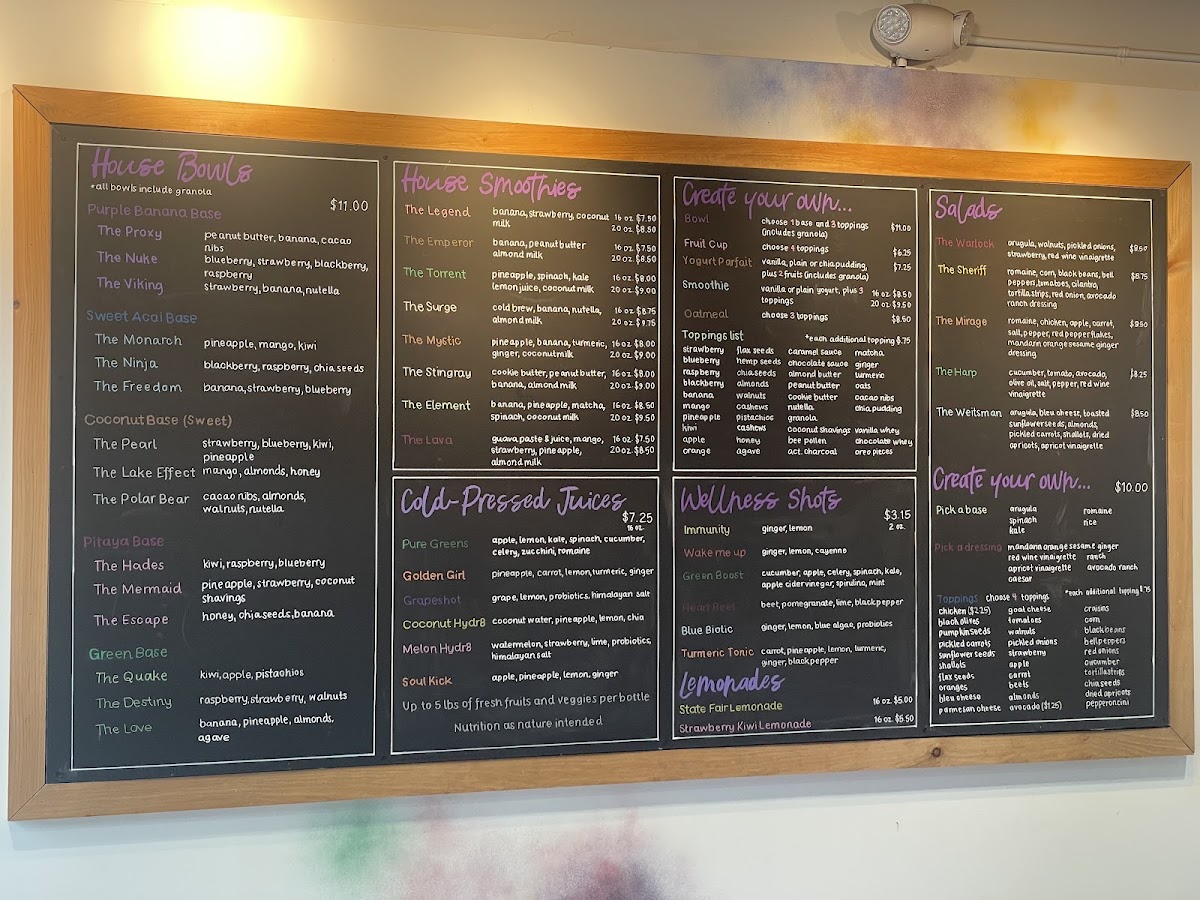 House Bowls
*all bowls include granola
$11.00
Purple Banana Base
The Proxy peanut butter, banana, cacao
nibs
The Nuke blueberry, strawberry, blackberry,
raspberry
The Viking strawberry, banana, nutella
Sweet Acai Base
The Monarch pineapple, mango, kiwi
The Ninja blackberry, raspberry, chia seeds
The Freedom banana, strawberry, blueberry
Coconut Base (Sweet)
The Pearl strawberry, blueberry, kiwi,
pineapple
The Lake Effect mango, almonds, honey
The Polar Bear cacao nibs, almonds,
walnuts, nutella
Pitaya Base
The Hades kiwi, raspberry, blueberry
The Mermaid pineapple, strawberry, coconut
shavings
The Escape honey, chia seeds, banana
Green Base
The Quake kiwi, apple, pistachios
The Destiny raspberry, strawberry, walnuts
The Love banana, pineapple, almonds,
agave
House Smoothies
The Legend banana, strawberry, coconut 16 oz. $7.50
milk 20 oz. $8.50
The Emperor banana, peanut butter 16 oz. $7.50
almond milk 20 oz. $8.50
The Torrent pineapple, spinach, kale 16 oz. $8.00
lemon juice, coconut milk 20 oz. $9.00
The Surge cold brew, banana, nutella, 16 oz. $8.75
almond milk 20 oz. $9.75
The Mystic pineapple, banana, turmeric, 16 oz. $8.00
ginger, coconut milk 20 oz. $9.00
The Stingray cookie butter, peanut butter, 16 oz. $8.00
banana, almond milk 20 oz. $9.00
The Element banana, pineapple, matcha, 16 oz. $8.50
spinach, coconut milk 20 oz. $9.50
The Lava guava paste & juice, mango, 16 oz. $7.50
strawberry, pineapple, 20 oz. $8.50
almond milk
Cold-Pressed Juices
$7.25
16 oz.
Pure Greens apple, lemon, kale, spinach, cucumber,
celery, zucchini, romaine
Golden Girl pineapple, carrot, lemon, turmeric, ginger
Grapeshot grape, lemon, probiotics, himalayan salt
Coconut Hydr8 coconut water, pineapple, lemon, chia
Melon Hydr8 watermelon, strawberry, lime, probiotics,
himalayan salt
Soul Kick apple, pineapple, lemon, ginger
Up to 5 lbs of fresh fruits and veggies per bottle
Nutrition as nature intended
Create your own...
Bowl choose 1 base and 3 toppings $11.00
(includes granola)
Fruit Cup choose 4 toppings $6.25
Yogurt Parfait vanilla, plain or chia pudding, $7.25
plus 2 fruits (includes granola)
Smoothie vanilla or plain yogurt, plus 3 16 oz. $8.50
toppings 20 oz. $9.50
Oatmeal choose 3 toppings $8.50
Toppings list *each additional topping $.75
strawberry flax seeds caramel sauce matcha
blueberry hemp seeds chocolate sauce ginger
raspberry chia seeds almond butter turmeric
blackberry almonds peanut butter oats
banana walnuts cookie butter cacao nibs
mango cashews nutella chia pudding
pineapple pistachios granola
kiwi cashews coconut shavings vanilla whey
apple honey bee pollen chocolate whey
orange agave act. charcoal oreo pieces
Wellness Shots
$3.15
2 oz.
Immunity ginger, lemon
Wake me up ginger, lemon, cayenne
Green Boost cucumber, apple, celery, spinach, kale,
apple cider vinegar, spirulina, mint
Heart Beet beet, pomegranate, lime, black pepper
Blue Biotic ginger, lemon, blue algae, probiotics
Turmeric Tonic carrot, pineapple, lemon, turmeric,
ginger, black pepper
Lemonades
State Fair Lemonade 16 oz. $5.00
Strawberry Kiwi Lemonade 16 oz. $5.50
Salads
The Warlock arugula, walnuts, pickled onions, $8.50
strawberry, red wine vinaigrette
The Sheriff romaine, corn, black beans, bell $8.75
peppers, tomatoes, cilantro,
tortilla strips, red onion, avocado
ranch dressing
The Mirage romaine, chicken, apple, carrot, $8.50
salt, pepper, red pepper flakes,
mandarin orange sesame ginger
dressing
The Harp cucumber, tomato, avocado, $8.25
olive oil, salt, pepper, red wine
vinaigrette
The Weitsman arugula, bleu cheese, toasted $8.50
sunflower seeds, almonds,
pickled carrots, shallots, dried
apricots, apricot vinaigrette
Create your own...
$10.00
Pick a base arugula romaine
spinach rice
kale
Pick a dressing mandarin orange sesame ginger
red wine vinaigrette ranch
apricot vinaigrette avocado ranch
caesar
Toppings choose 4 toppings *each additional topping $.75
chicken ($2.25) goat cheese craisins
black olives tomatoes corn
pumpkin seeds walnuts black beans
pickled carrots pickled onions bell peppers
sunflower seeds strawberry red onions
shallots apple cucumber
flax seeds carrot tortilla strips
oranges beets chia seeds
bleu cheese almonds dried apricots
parmesan cheese avocado ($1.25) pepperoncini